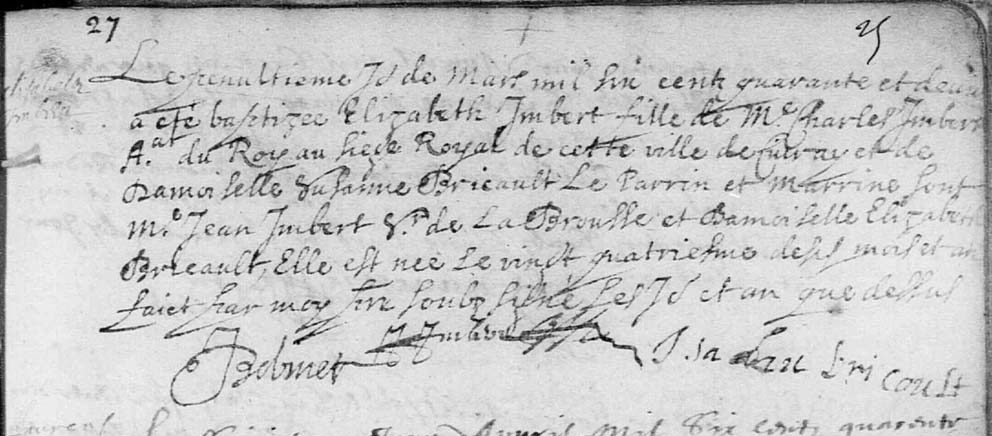 27
25
Le penultieme Jr de Mars mil six centz quarante et deux
a esté baptizee Elizabeth Jmbert fille de Me Charles Jmbert
A.at du Roy au siege Royal de cette ville de et de
Damoiselle Susanne Bricault Le Parrin et Marrine sont
Me Jean Jmbert Sr de La Brousse et Damoiselle Elizabeth
Bricault, Elle est neé Le vingt quatriesme desds mois et an
faict par moy soubz signé Les Jr et an que dessus
Jmbert
Isabau bricoult
Avril mil six centz quarente